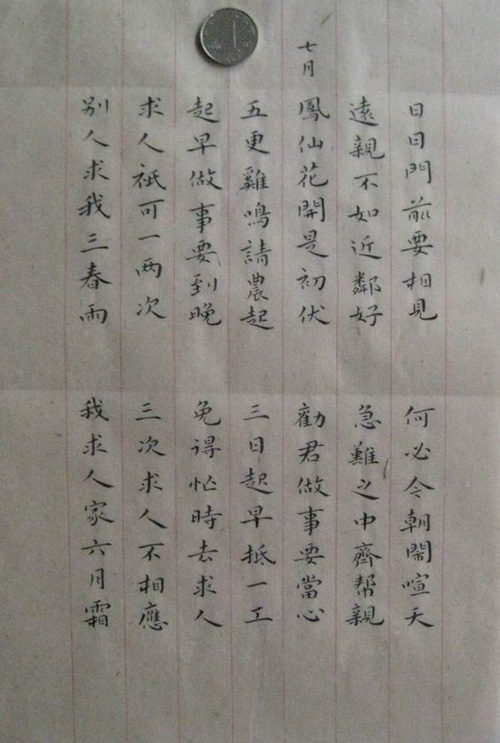 日日門前要相見　何必今朝鬧喧天
遠親不如近鄰好　急難之中齊帮親
七月
鳳仙花開是初伏　勸君做事要當心
五更雞鳴請農起　三日起早抵一工
起早做事要到晚　免得忙時去求人
求人祇可一两次　三次求人不相應
别人求我三春雨　我求人家六月霜